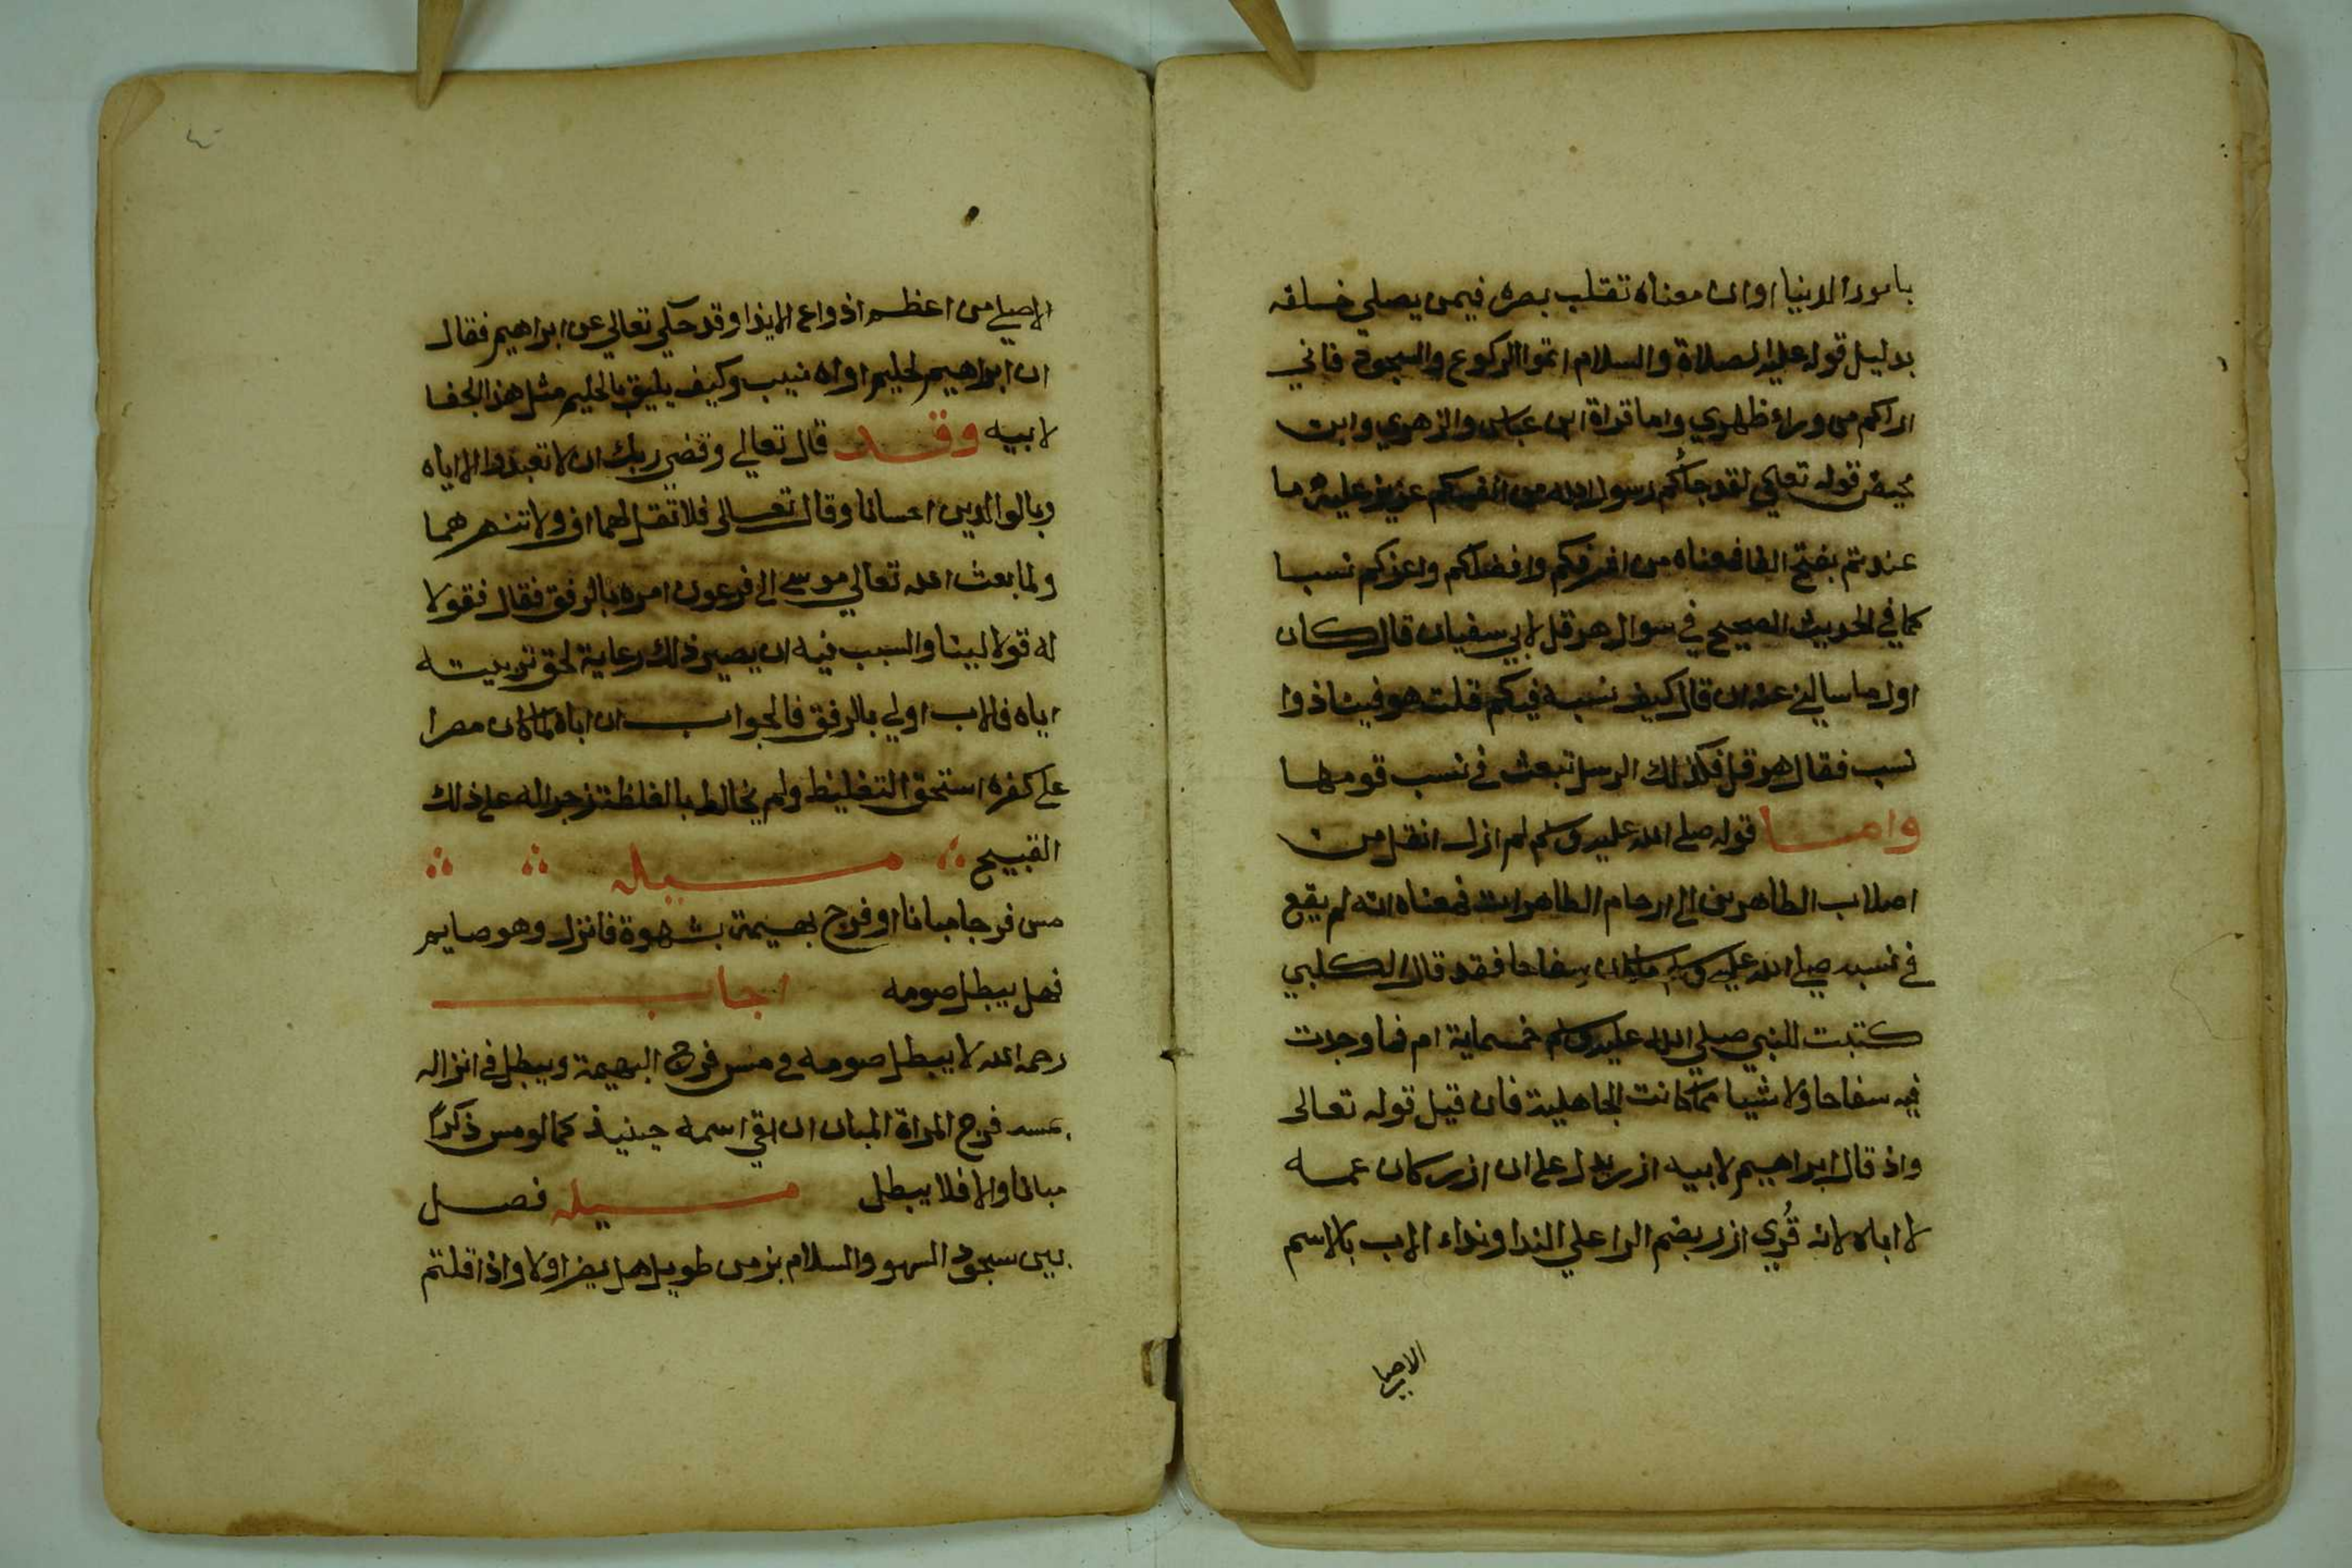 بامور الدنيا او ان معناه تقلب بصره فيمن يصلي خلفه
بدليل قوله عليه الصلاة والسلام اتموا الركوع والسجود فاني
اراكم من وراء ظهري واما قراة ابن عباس والزهري وابن
محيصن قوله تعالي لقد جاكم رسول الله من انفسكم عزيز عليه ما
عندتم بفتح الفا فمعناه من اشرفكم وافضلكم واعزكم نسبا
كما في الحديث الصحيح في سوال هرقل لابي سفيان قال كان
اول ما سالني عنه ان قال كيف نسبه فيكم قلت هو فينا ذوا
نسب فقال هرقل فكذلك الرسل تبعث في نسب قومها
واما قوله صلي الله عليه وسلم لم ازل انقل من
اصلاب الطاهرين الي ارحام الطاهرات فمعناه انه لم يقع
في نسبه صلي الله عليه وسلم ماكان سفاحا فقد قال الكلبي
كتبت للنبي صلي الله عليه وسلم خمسماية ام فما وجدت
فيه سفاحا ولا شيا مما كانت الجاهلية فان قيل قوله تعالى
واذ قال ابراهيم لابيه ازر يدل علي ان ازر كان عمه
لا اباه لانه قُري ازر بضم الرا علي الندا ونداء الاب بالاسم
الاصلي
الاصلي من اعظم انواع الايذا وقد حكي تعالي عن ابراهيم فقال
ان ابراهيم لحليم اواه منيب وكيف يليق بالحليم مثل هذا الجفا
لابيه وقد قال تعالي وقضي ربك ان لا تعبدوا الا اياه
وبالوالدين احسانا وقال تعالى فلا تقل لهما اف ولا تنهرهما
ولما بعث الله تعالي موسي الي فرعون امره بالرفق فقال فقولا
له قولا لينا والسبب فيه ان يصير ذلك رعاية لحق تربيته
اياه فالاب اولي بالرفق فالجواب ان اباه لما كان مصرا
علي كفره استحق التغليظ ولم يخالط بالغلظة زجرا له علي ذلك
القبيح مسيله
مس فرجا مبانا او فرج بهيمة بشهوة فانزل وهو صايم
فهل يبطل صومه اجاب
رحمه الله لا يبطل صومه في مس فرج البهيمة ويبطل في انزاله
بمسه فرج المراة المبان ان بقي اسمه حينيذ كما لو مس ذكراً
مبانا والا فلا يبطل مسيله فصل
بين سجود السهو والسلام بزمن طويل هل يضر او لا واذا قلتم